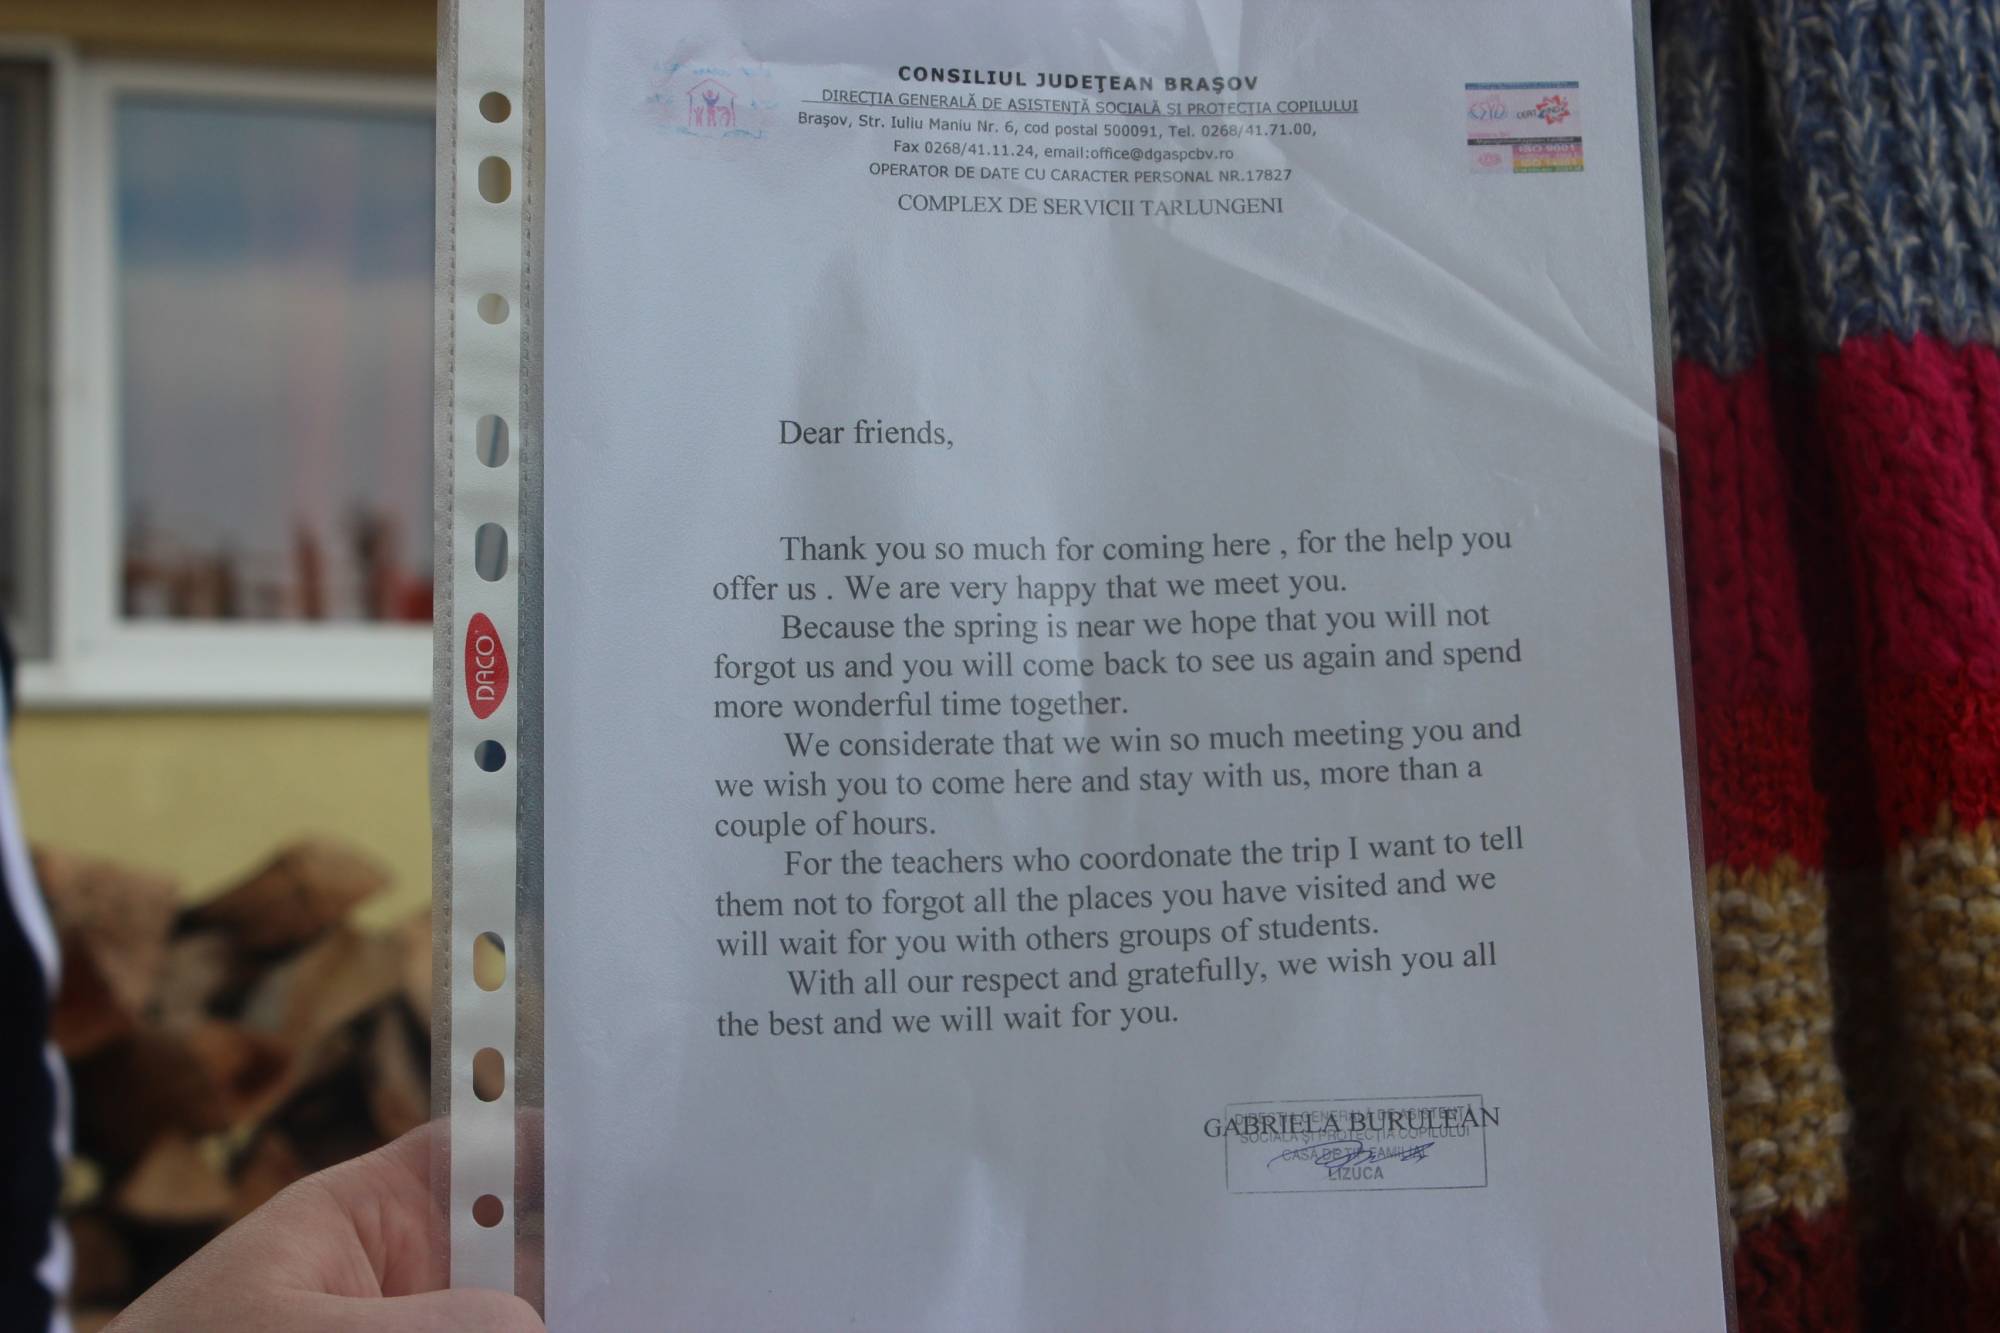 CONSILIUL JUDEŢEAN BRAŞOV
DIRECŢIA GENERALĂ DE ASISTENŢĂ SOCIALĂ ŞI PROTECŢIA COPILULUI
Braşov, Str. Iuliu Maniu Nr. 6, cod postal 500091, Tel. 0268/41.71.00,
Fax 0268/41.11.24, email:office@dgaspcbv.ro
OPERATOR DE DATE CU CARACTER PERSONAL NR.17827
COMPLEX DE SERVICII TARLUNGENI
ISO 9001
Dear friends,
Thank you so much for coming here , for the help you
offer us . We are very happy that we meet you.
Because the spring is near we hope that you will not
forgot us and you will come back to see us again and spend
more wonderful time together.
We considerate that we win so much meeting you and
we wish you to come here and stay with us, more than a
couple of hours.
For the teachers who coordonate the trip I want to tell
them not to forgot all the places you have visited and we
will wait for you with others groups of students.
With all our respect and gratefully, we wish you all
the best and we will wait for you.
GABRIELA BURULEAN
DIRECŢIA GENERALĂ DE ASISTENŢĂ
SOCIALĂ ŞI PROTECŢIA COPILULUI
CASA DE TIP FAMILIAL
LIZUCA
DACO